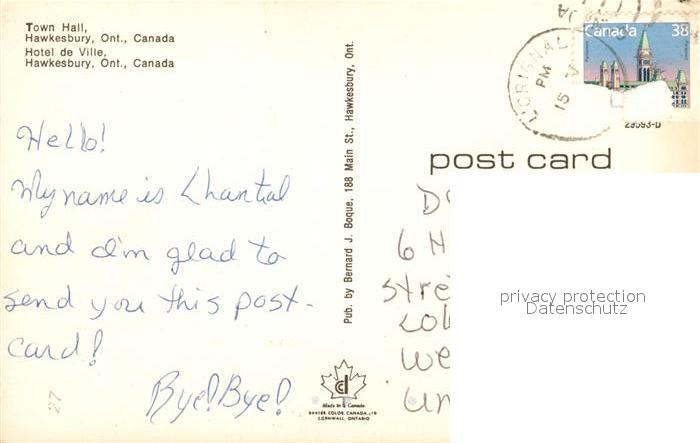 Town Hall,
Hawkesbury, Ont., Canada
Hotel de Ville,
Hawkesbury, Ont., Canada
Hello!
My name is Chantal
and I'm glad to
send you this post-
card!
Bye! Bye!
27
Pub. by Bernard J. Boque, 188 Main St., Hawkesbury, Ont.
Made in Canada
COLOR, CANADA, LTD
CORNWALL, ONTARIO
L'ORIGNAL
PM
15
Canada 38
29593-D
post card
6 H
stre
we
un
privacy protection
Datenschutz